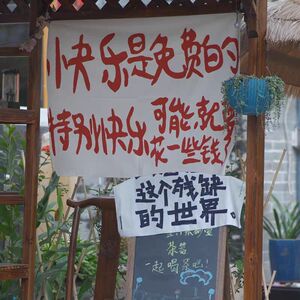 快乐是免费的
特别快乐可能就要
花一些钱了
这个残缺
的世界。
茶芸
一起喝茶吧!